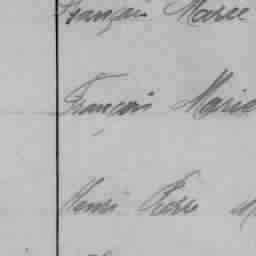 François Marie
François Marie
Henri Pierre M